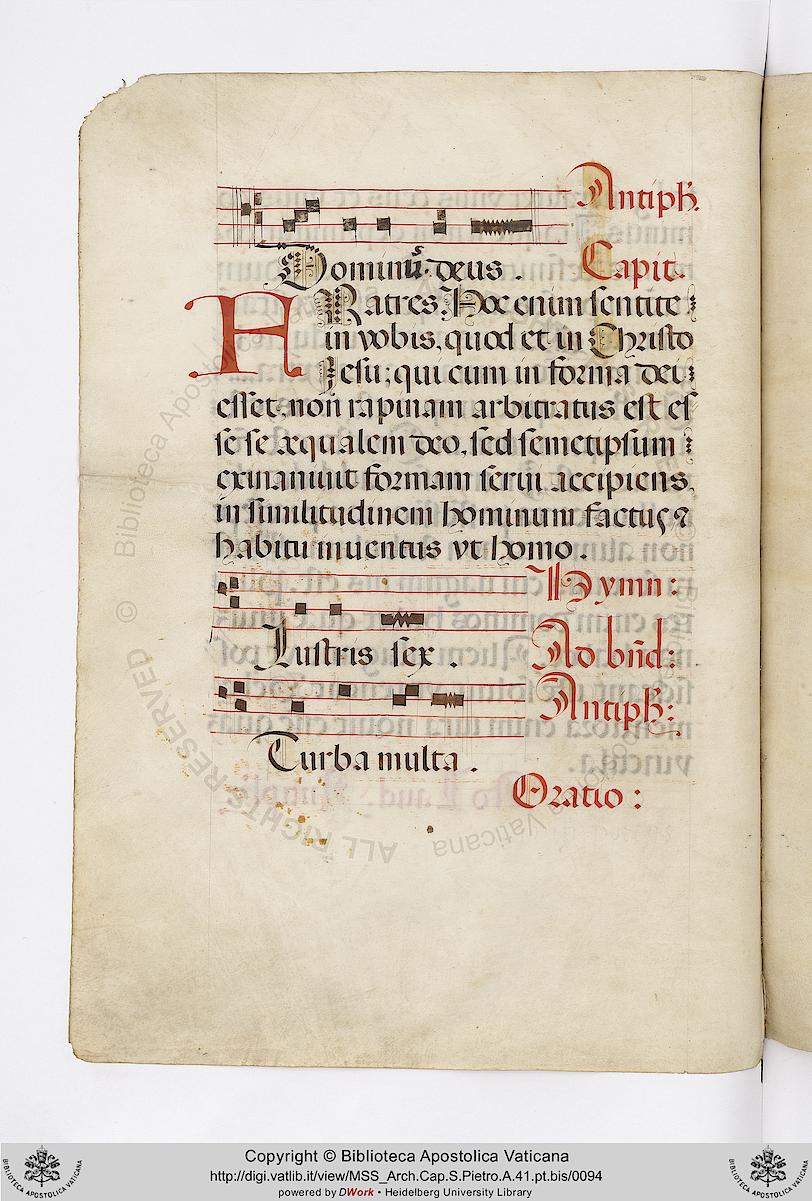 Antiph.
Dominū. deus.
Capit.
FRatres. Hoc enim sentite
in vobis, quod et in Christo
Jesu; qui cum in forma dei
esset, non rapinam arbitratus est es
se se æqualem deo, sed semetipsum
exinanivit formam servi accipiens,
in similitudinem hominum factus ⁊
habitu inventus vt homo.
Hymn:
Lustris sex.
Ad bñd:
Antiph:
Turba multa.
Oratio:
© Biblioteca Apostolica Vaticana
ALL RIGHTS RESERVED
Copyright © Biblioteca Apostolica Vaticana
http://digi.vatlib.it/view/MSS_Arch.Cap.S.Pietro.A.41.pt.bis/0094
powered by DWork • Heidelberg University Library
BIBLIOTECA APOSTOLICA VATICANA
BIBLIOTECA APOSTOLICA VATICANA